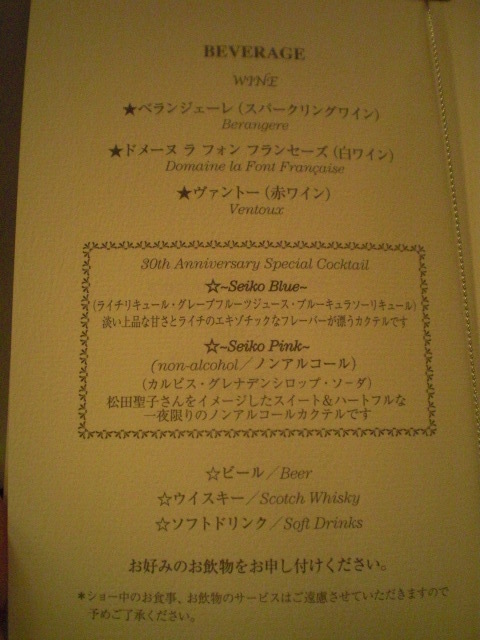 BEVERAGE
WINE
★ベランジェーレ（スパークリングワイン）
Berangere
★ドメーヌ ラ フォン フランセーズ（白ワイン）
Domaine la Font Française
★ヴァントー（赤ワイン）
Ventoux
30th Anniversary Special Cocktail
☆~Seiko Blue~
（ライチリキュール・グレープフルーツジュース・ブルーキュラソーリキュール）
淡い上品な甘さとライチのエキゾチックなフレーバーが漂うカクテルです
☆~Seiko Pink~
(non-alcohol／ノンアルコール）
（カルピス・グレナデンシロップ・ソーダ）
松田聖子さんをイメージしたスイート＆ハートフルな
一夜限りのノンアルコールカクテルです
☆ビール／Beer
☆ウイスキー／Scotch Whisky
☆ソフトドリンク／Soft Drinks
お好みのお飲物をお申し付けください。
＊ショー中のお食事、お飲物のサービスはご遠慮させていただきますので
予めご了承ください。